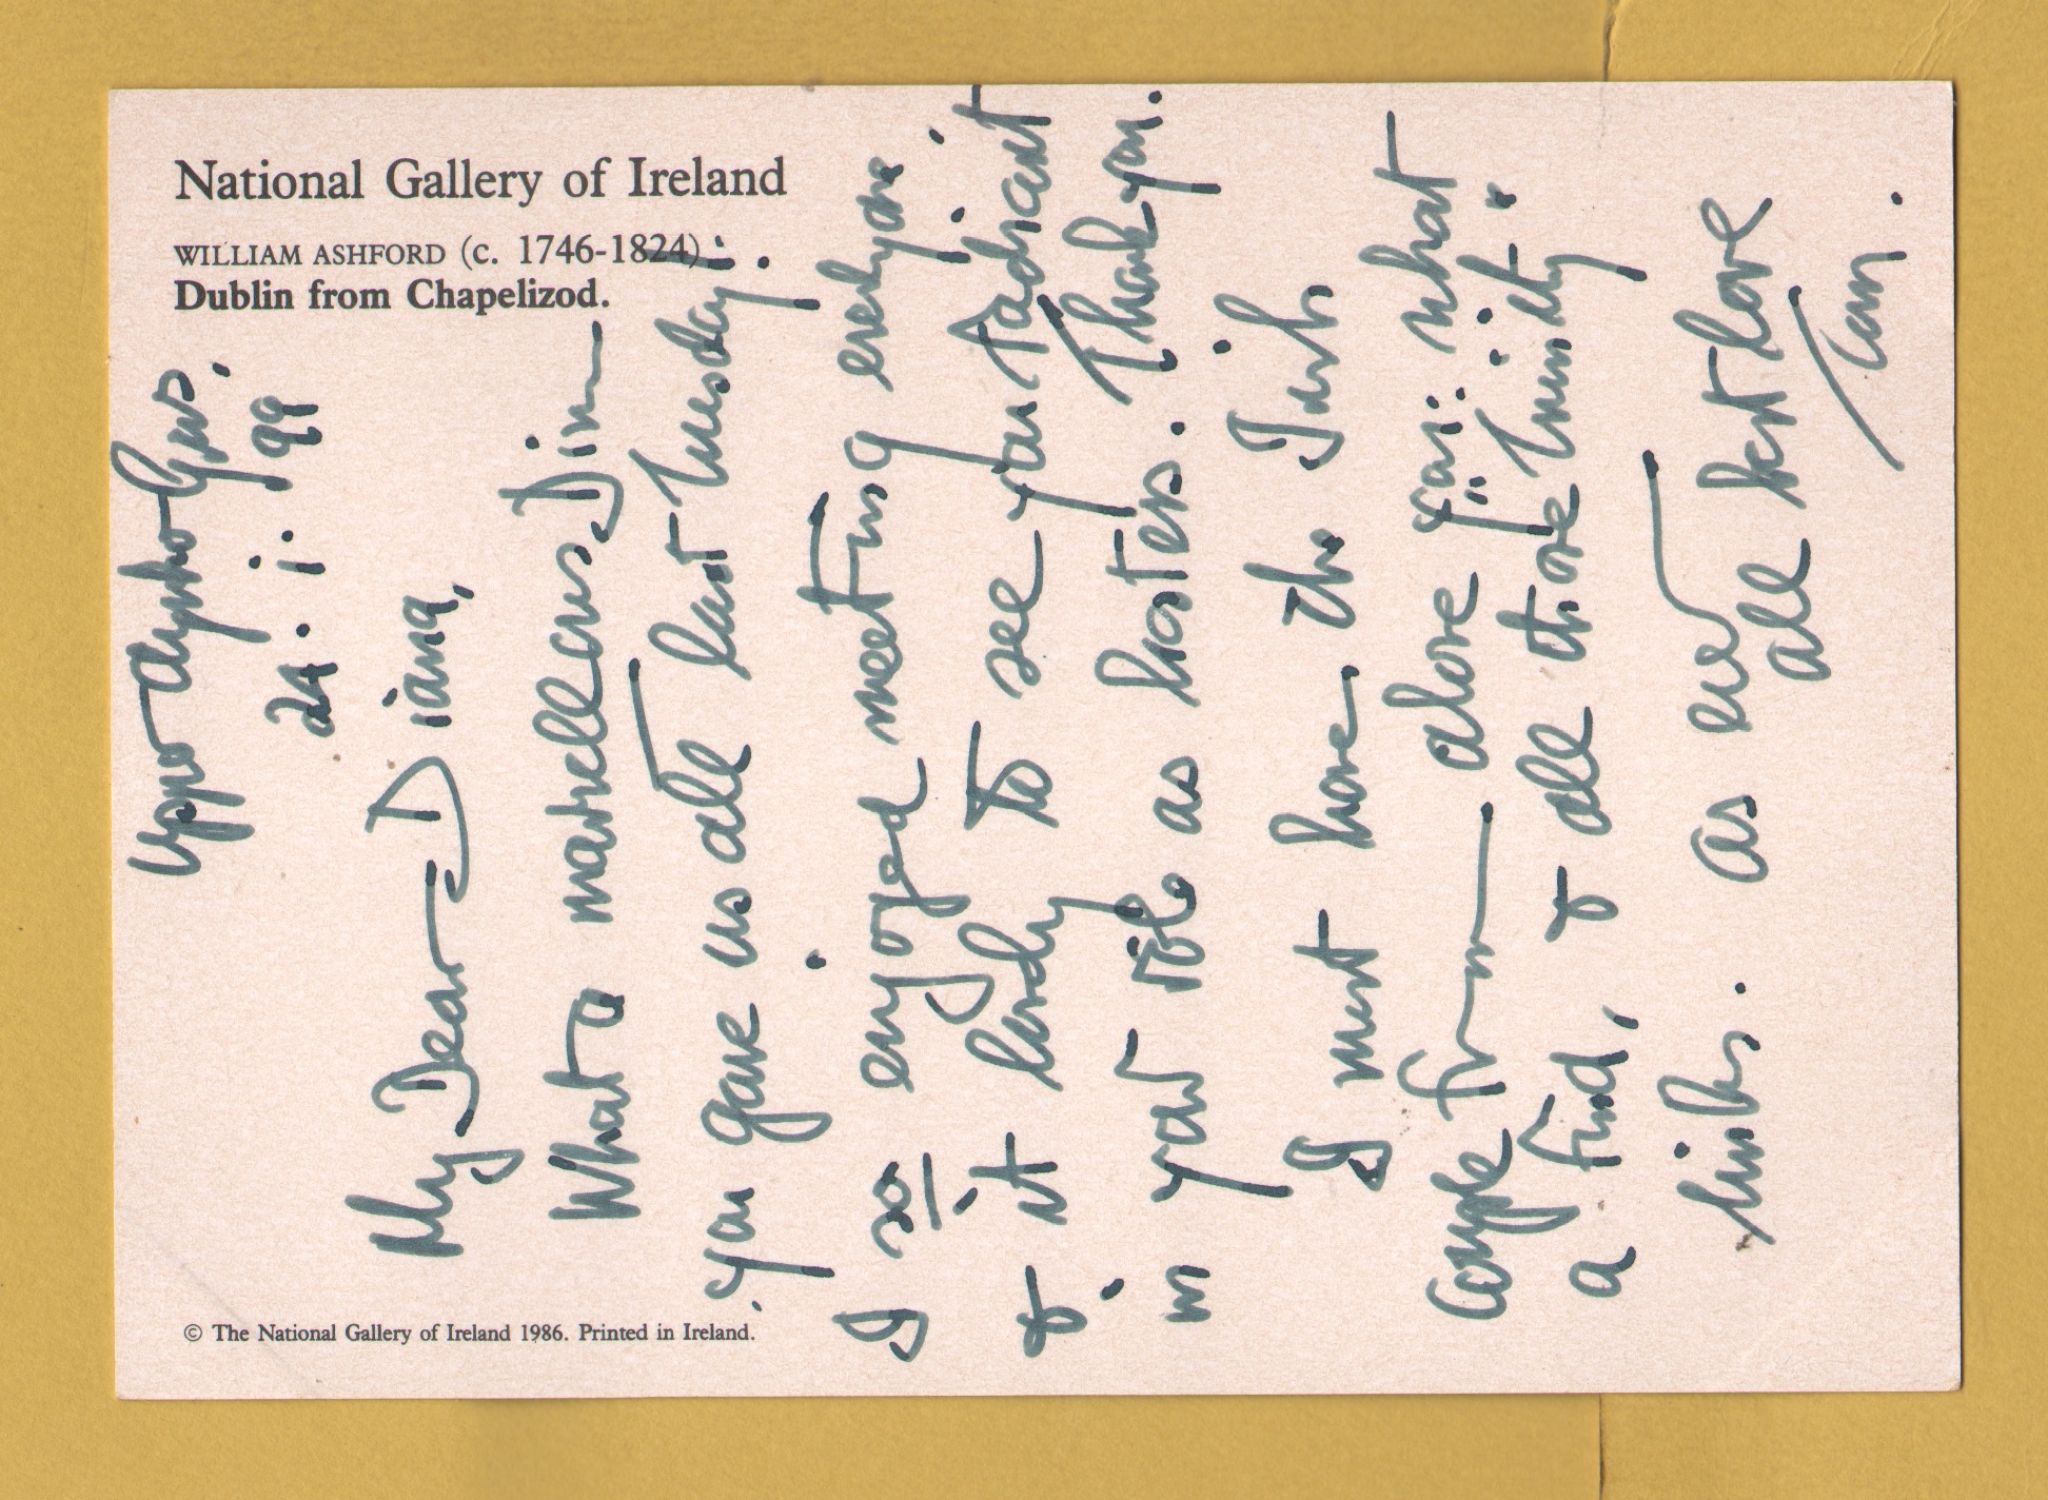 National Gallery of Ireland
WILLIAM ASHFORD (c. 1746-1824)
Dublin from Chapelizod.
© The National Gallery of Ireland 1986. Printed in Ireland.
Upper
24. i. 99
My Dear Diana,
What a marvellous Din
you gave us all last Tuesday.
I so enjoyed meeting everyone
& it lovely to see you radiant
in your rôle as hostess. Thank you.
I must have the
couple from above
a find, & all those
links. as ever
all best love
Ian.